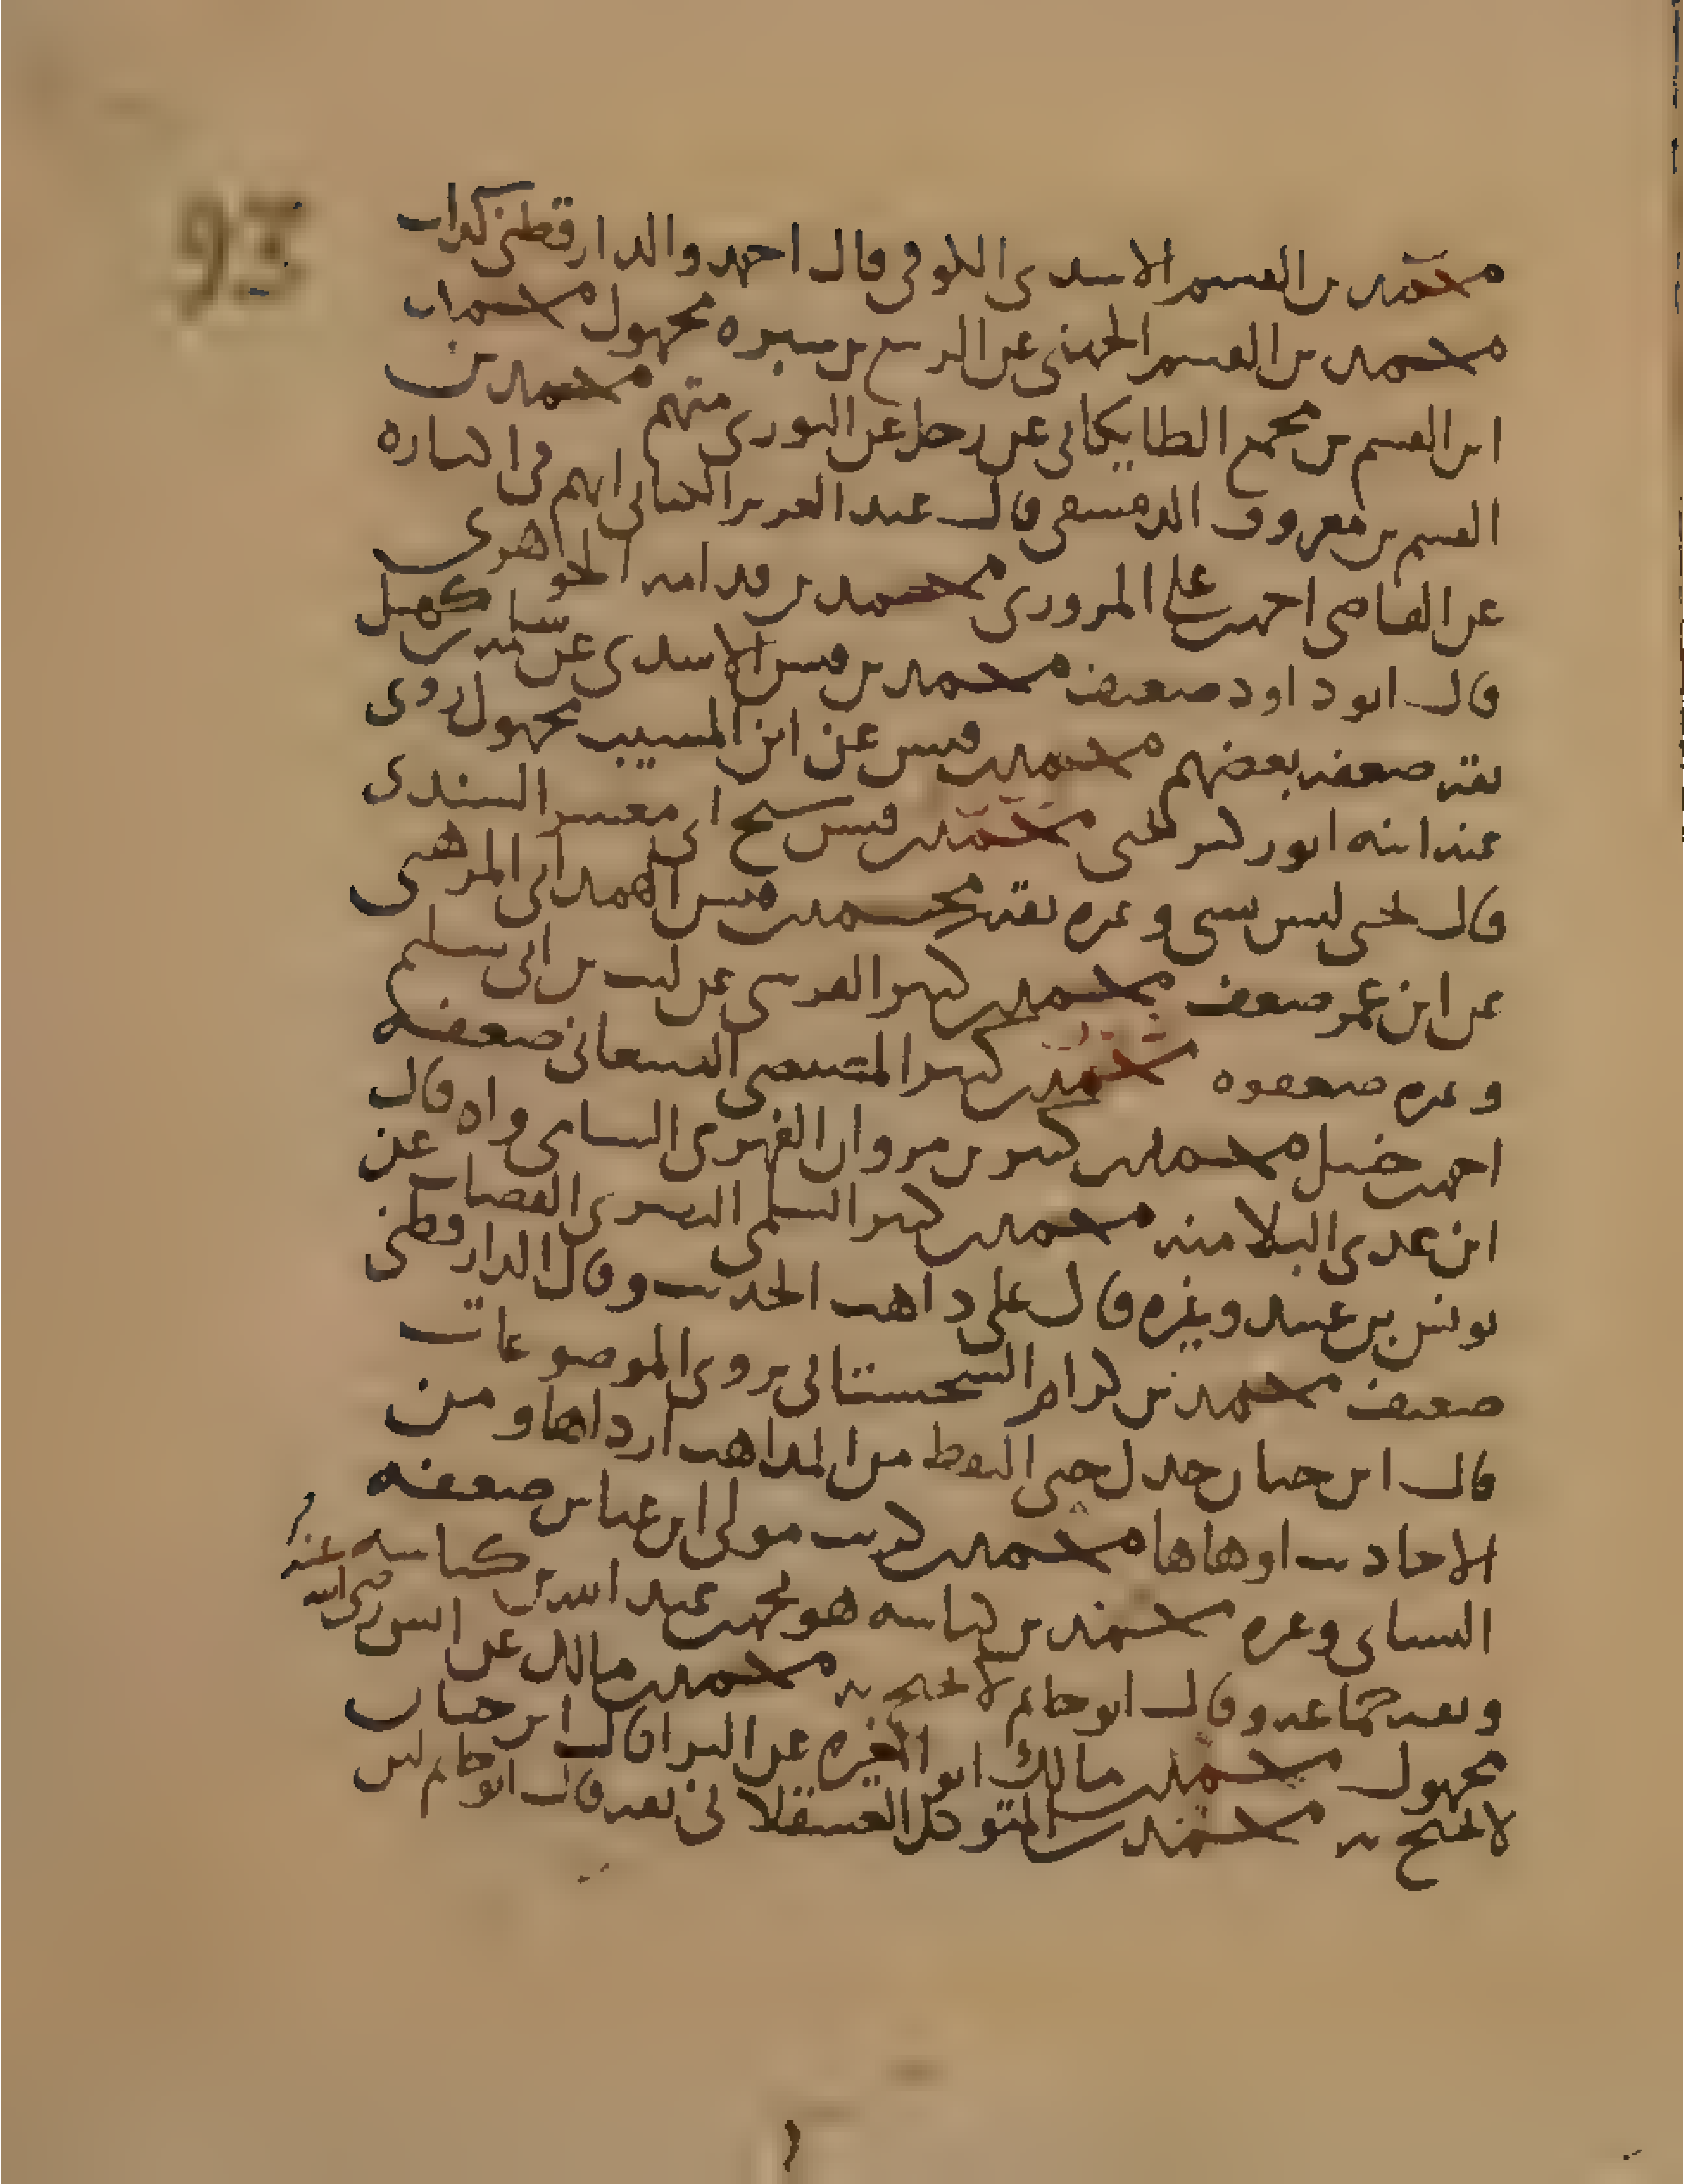 93
محمد بن القسم الاسدي الكوفي قال احمد والدارقطني كذاب
محمد بن القسم الجهني عن الربيع بن سبره مجهول محمد بن
ابن القسم بن مجمع الطايكاني عن رجل عن الثوري متهم محمد بن
القسم بن معروف الدمشقي قال عبد العزيز الكتاني اتهم في اكثاره
عن القاضي احمد بن علي المروزي محمد بن قدامه الجوهري
قال ابو داود ضعيف محمد بن قيس الاسدي عن سلمه بن كهيل
ثقه ضعفه بعضهم محمد بن قيس عن ابن المسيب مجهول روى
عنه ابنه ابو زكير يحيى محمد بن قيس شيخ ابي معشر السندي
قال يحيى ليس بشي وغيره ثقه محمد بن قيس الهمداني المرهبي
عن ابن عمر ضعف محمد بن كثير القرشي عن ليث بن ابي سليم
وغيره ضعفوه محمد بن كثير المصيصي الصنعاني ضعفه
احمد بن حنبل محمد بن كثير بن مروان الفهري الشامي واه قال
ابن عدي البلا منه محمد بن كثير السلمي البصري القصاب عن
يونس بن عبيد وغيره قال علي ذاهب الحديث وقال الدارقطني
ضعيف محمد بن كرام السجستاني يروي الموضوعات
قال ابن حبان خذل حتى التقط من المذاهب ارداها ومن
الاحاديث اوهاها محمد بن كريب مولى ابن عباس ضعفه
النسائي وغيره محمد بن كناسه هو محمد بن عبد الله بن كناسه
وثقه جماعه وقال ابو حاتم لا يحتج به محمد بن مالك عن انس رضي الله عنه
مجهول محمد بن مالك ابو المغيره عن البرا قال ابن حبان
لا يحتج به محمد بن المتوكل العسقلاني ثقه قال ابو حاتم لين